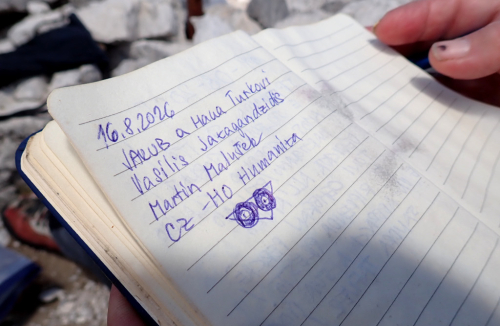 16.8.2026
JAKUB a Hana Turkovi
Vasilis Jakagandzidis
Martin Malušek
CZ - HO Humanita